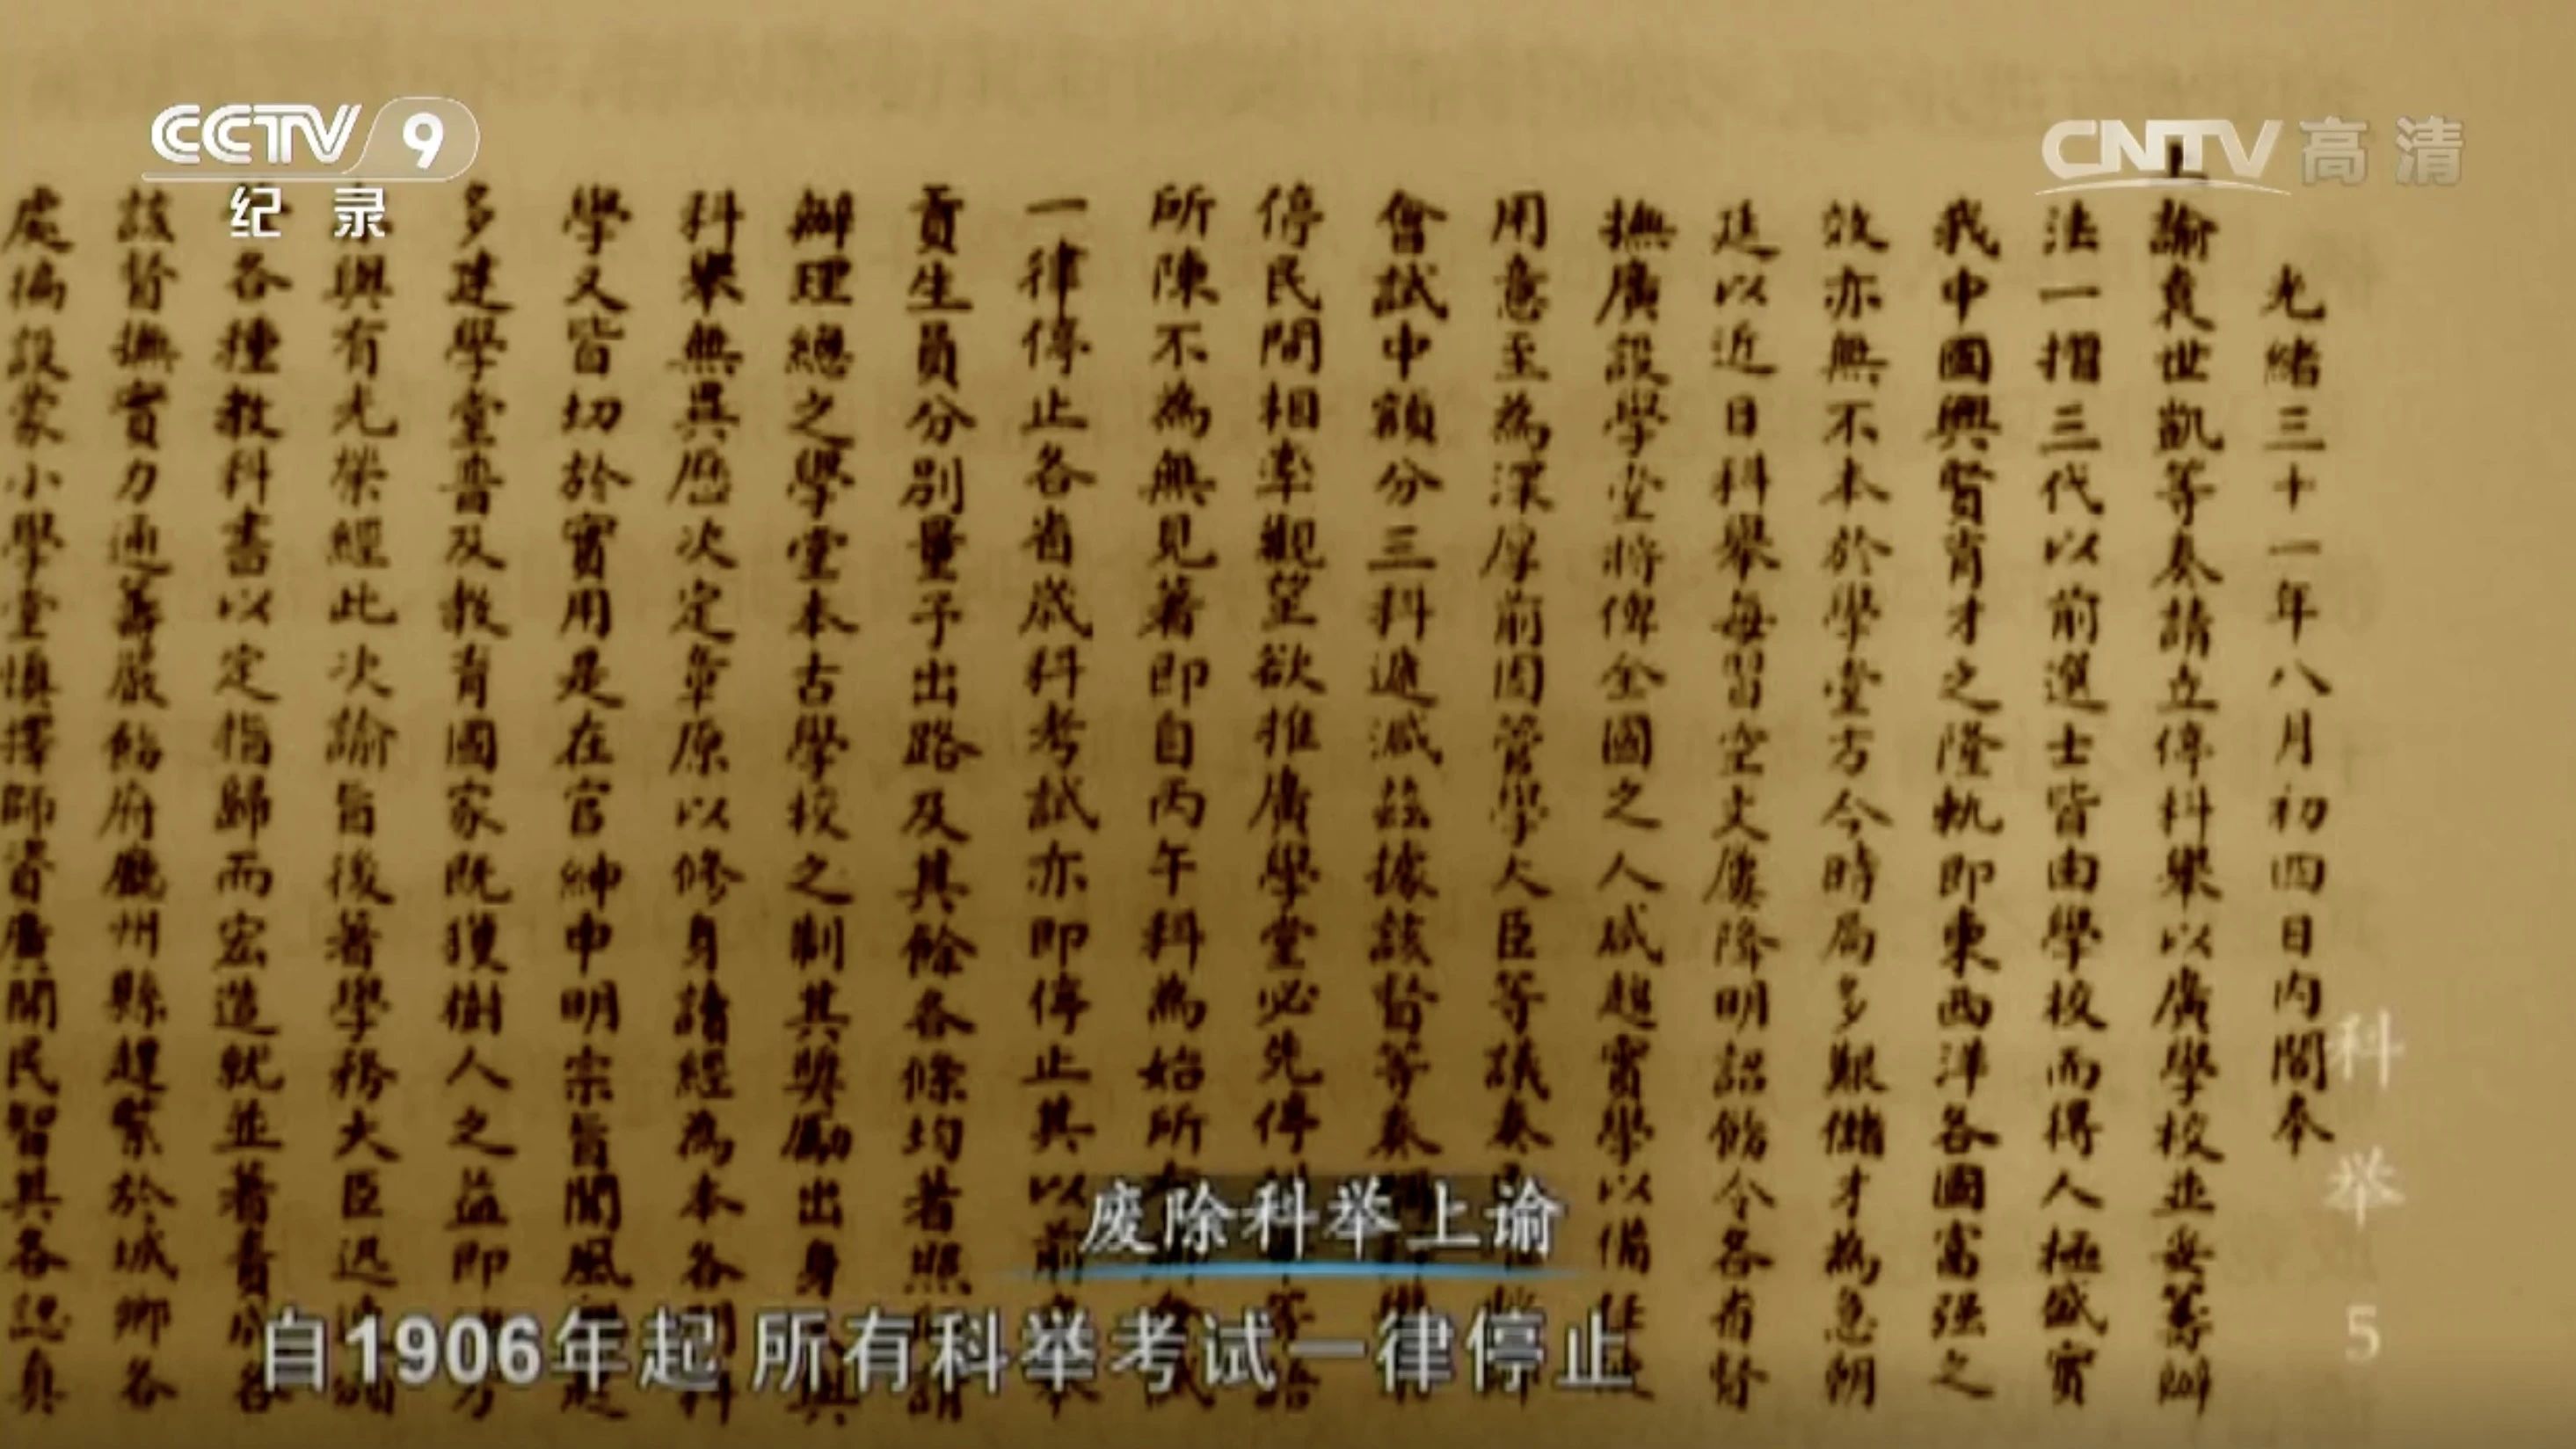 CCTV 9
纪录
CNTV 高清
光緒三十一年八月初四日内閣奉
上諭袁世凱等奏請立停科舉以廣學校並妥籌辦
法一摺三代以前選士皆由學校而得人極盛實
我中國興賢育才之隆軌即東西洋各國富强之
效亦無不本於學堂方今時局多艱儲才為急朝
廷以近日科舉每習空文屢降明詔飭令各省督
撫廣設學堂將俾全國之人咸趨實學以備任
用意至為深厚前因管學大臣等議奏
會試中額分三科遞減茲據該督等奏
停民間相率觀望欲推廣學堂必先停
所陳不為無見著即自丙午科為始所
一律停止各省歲科考試亦即停止其以前
貢生員分別量予出路及其餘各條均著照
辦理總之學堂本古學校之制其奬勵出身
科舉無異歷次定章原以修身讀經為本各
學又皆切於實用是在官紳申明宗旨聞風
多建學堂普及教育國家既獲樹人之益即
與有光榮經此次諭旨後著學務大臣迅
各種教科書以定指歸而宏造就並著責成各
該督撫實力通籌嚴飭府廳州縣趕緊於城鄉各
處徧設蒙小學堂慎擇師資廣開民智其各認真
科举
5
废除科举上谕
自1906年起 所有科举考试一律停止